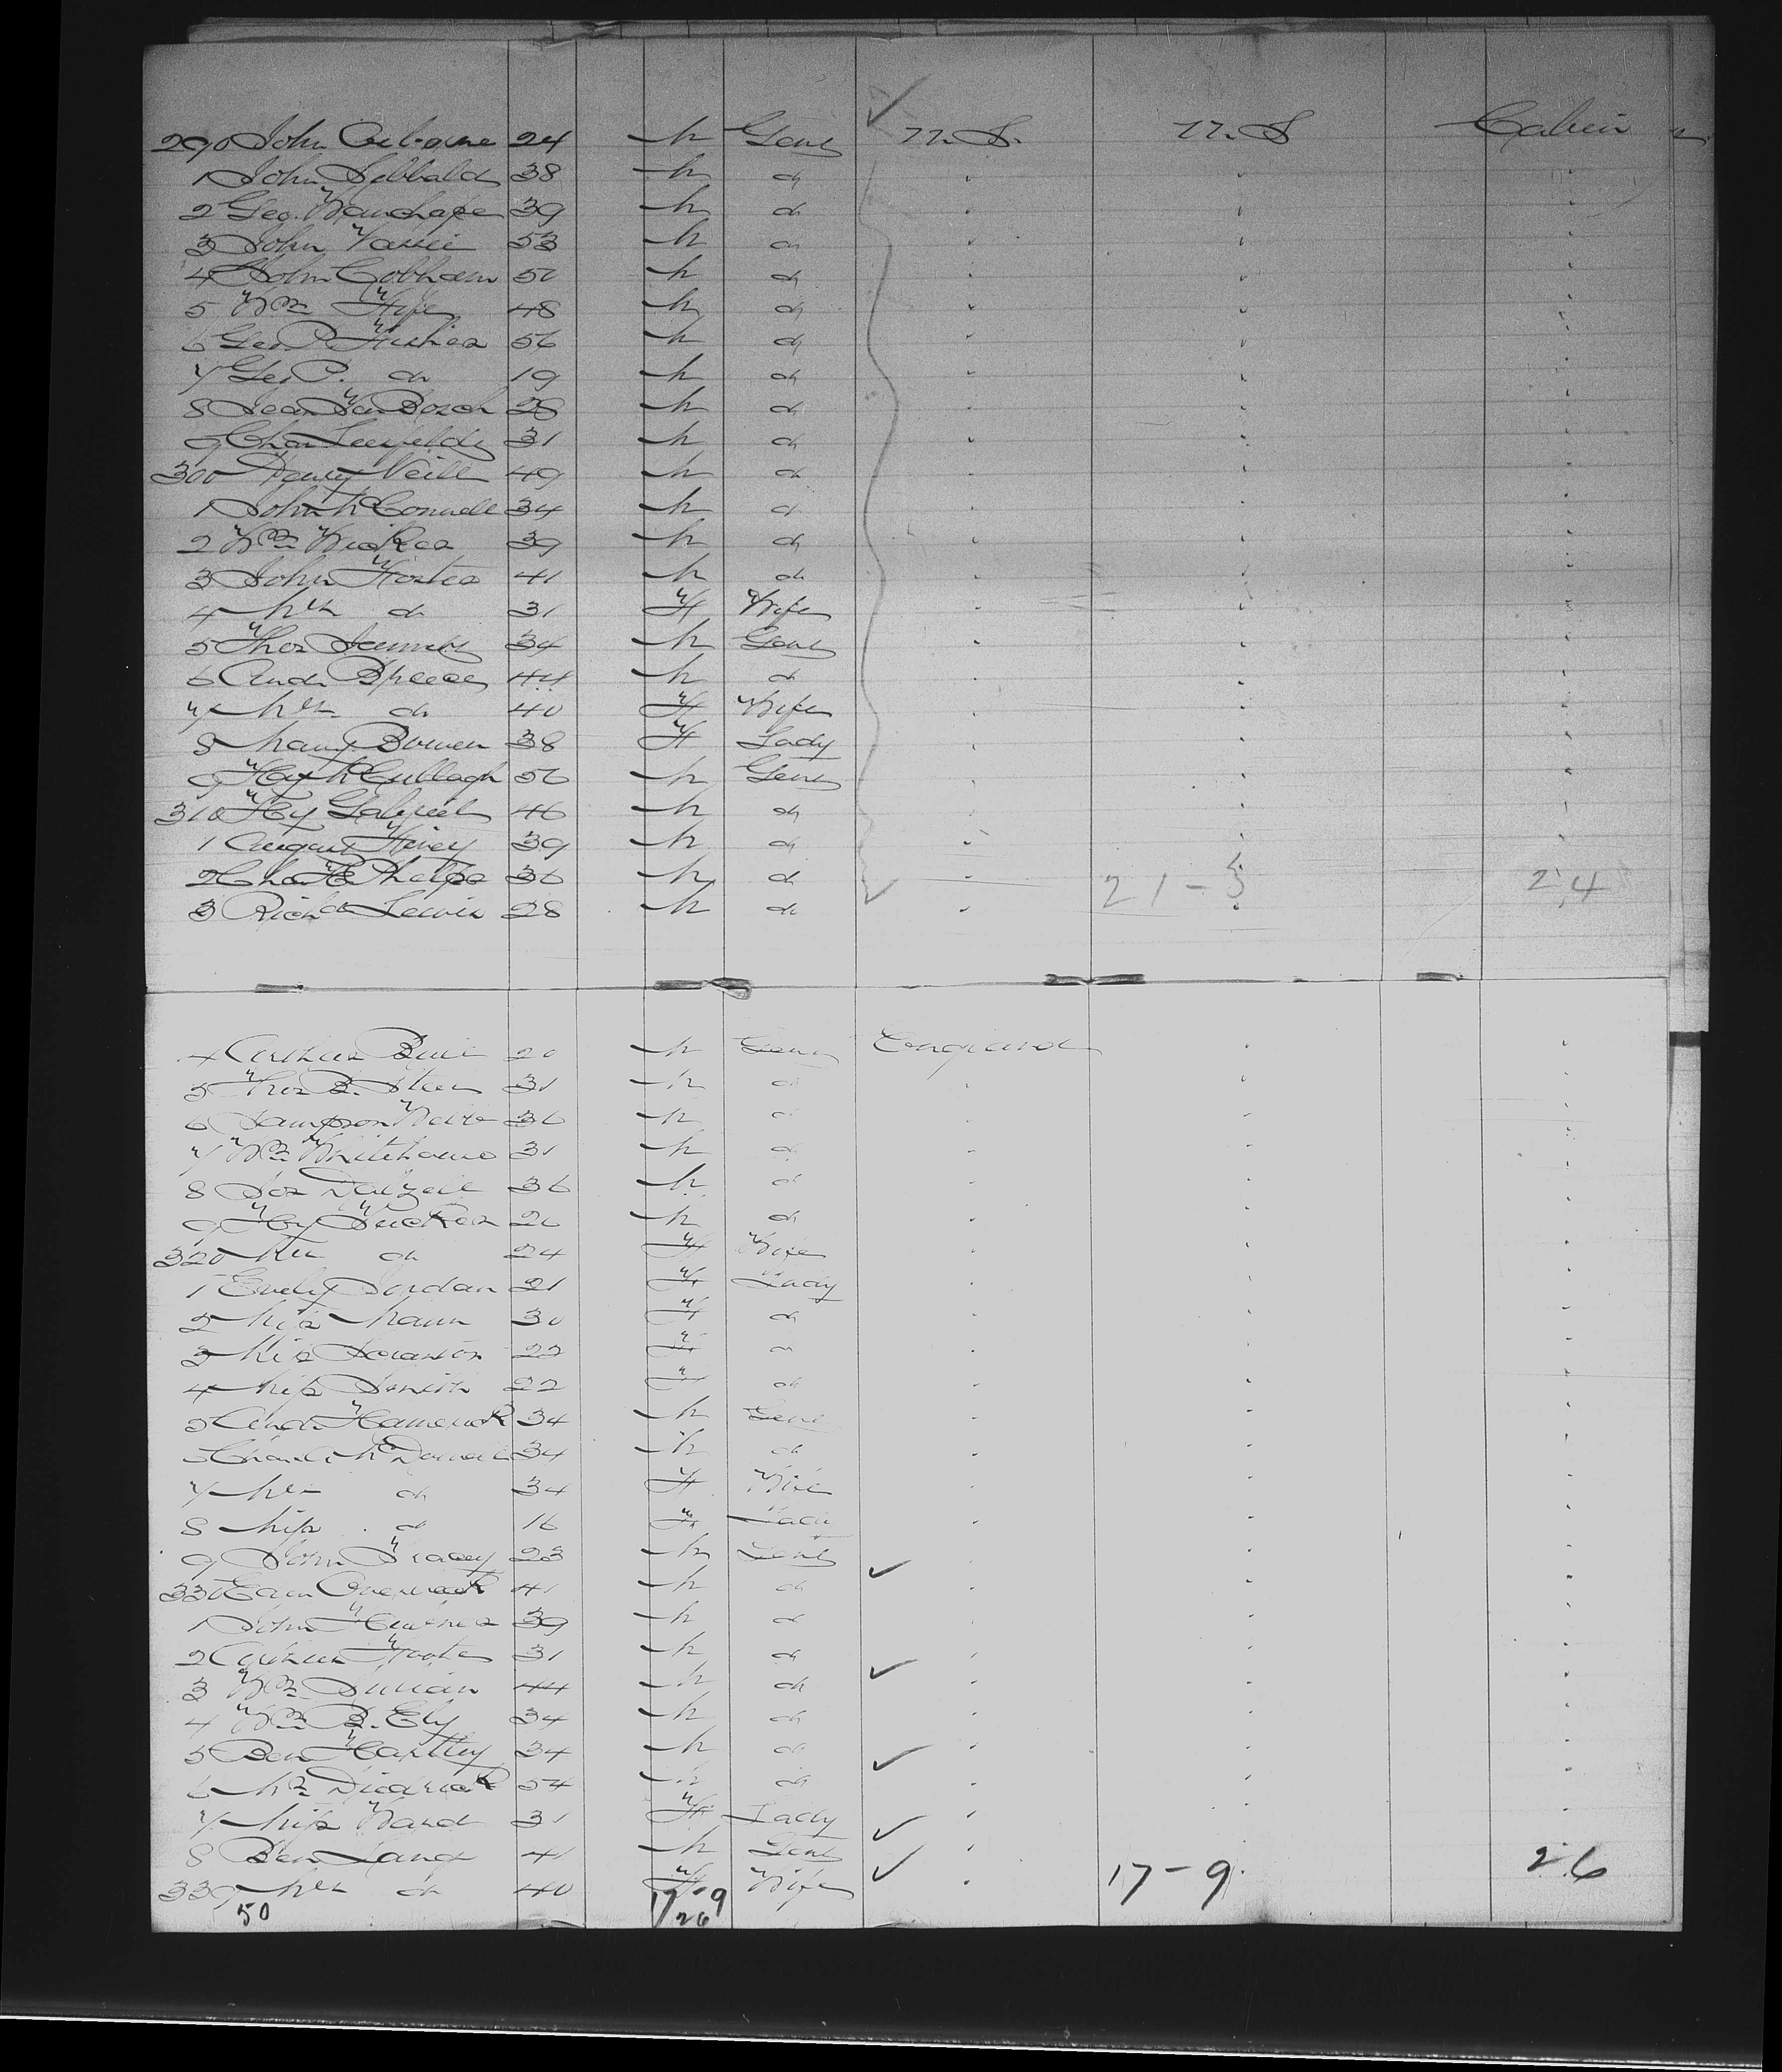 290 John Osborne 24 M Gent U.S. U.S Cabin
1 John Sibbald 38 M do
2 Geo. Wauchope 39 M do
3 John Vassie 53 M do
4 John Cobham 50 M do
5 Wm Fife 48 M do
6 Geo P. Fisher 56 M do
7 Geo P. do 19 M do
8 28 M do
9 Chas 31 M do
300 Henry Neill 49 M do
1 John McConnell 34 M do
2 Wm Wickes 39 M do
3 John Foster 41 M do
4 Mrs do 31 F Wife
5 Thos 34 M Gent
6 Andr 44 M do
7 Mrs do 40 F Wife
8 Mary Bowen 38 F Lady
9 Hy McCullagh 56 M Gent
310 Hy Gabriel 46 M do
1 August 39 M do
2 Chas H. Phelps 36 M do 21-3 24
3 Richd Lewis 28 M do
4 Arthur 20 M Gent England
5 Thos B. 31 M do
6 Sampson 36 M do
7 Wm Whitehouse 31 M do
8 Jos Dalzell 36 M do
9 Hy Tucker 26 M do
320 Mrs do 24 F Wife
1 Jordan 21 F Lady
2 Miss Mann 30 F do
3 Miss 22 F do
4 Miss Smith 22 F do
5 Andr 34 M Gent
McDonald 34 M do
7 Mrs do 34 F Wife
8 Miss do 16 F Lady
9 John Tracey 23 M Gent
330 41 M do
1 John 39 M do
2 Arthur Foote 31 M do
3 Wm 44 M do
4 Wm B. Ely 34 M do
5 Ben Hartley 34 M do
6 Mr Diedrick 54 M do
7 Miss Ward 31 F Lady
8 Ben Lang 41 M Gent 17-9 26
339 Mrs do 40 F Wife
50 17-9
26